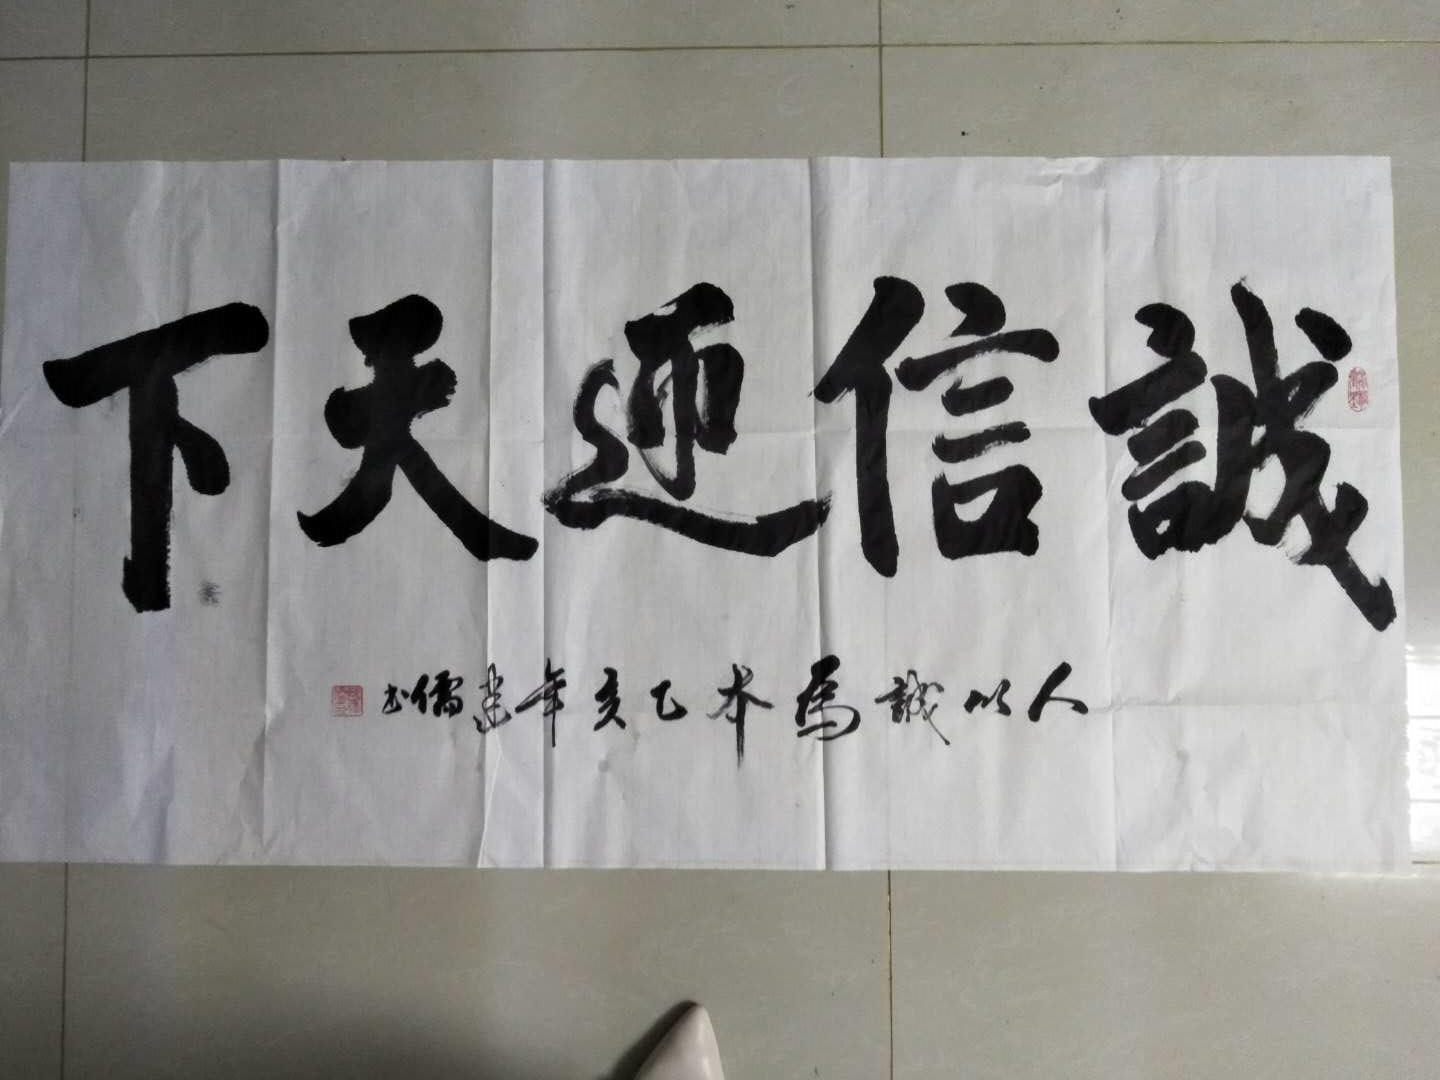 誠信通天下
人以誠為本乙亥年建儒书